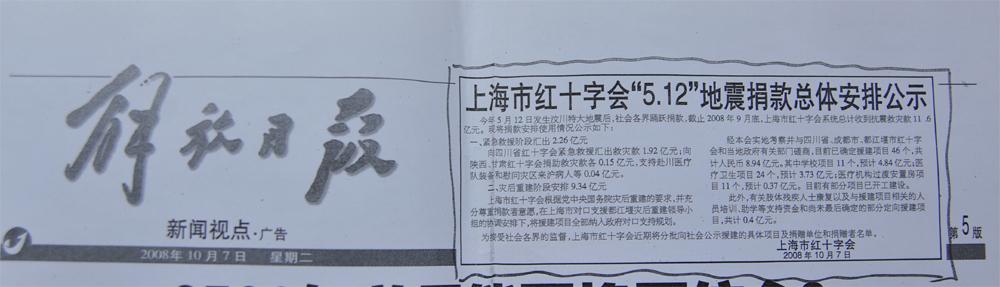 解放日报
新闻视点·广告
2008年10月7日 星期二
上海市红十字会“5.12”地震捐款总体安排公示
今年5月12日发生汶川特大地震后，社会各界踊跃捐款，截止2008年9月底，上海市红十字会系统总计收到抗震救灾款11.6
亿元。现将捐款安排使用情况公示如下：
一、紧急救援阶段汇出2.26亿元
向四川省红十字会紧急救援汇出救灾款1.92亿元；向
陕西、甘肃红十字会捐助救灾款各0.15亿元，支持赴川医疗
队装备和慰问灾区来沪病人等0.04亿元。
二、灾后重建阶段安排9.34亿元
上海市红十字会根据党中央国务院灾后重建的要求，并充
分尊重捐款者意愿，在上海市对口支援都江堰灾后重建领导小
组的协调安排下，将援建项目全部纳入政府对口支持规划。
经本会实地考察并与四川省、成都市、都江堰市红十字
会和当地政府有关部门磋商，目前已确定援建项目46个，共
计人民币8.94亿元。其中学校项目11个，预计4.84亿元；医
疗卫生项目24个，预计3.73亿元；医疗机构过渡安置房项
目11个，预计0.37亿元。目前有部分项目已开工建设。
此外，有关肢体残疾人士康复以及与援建项目相关的人
员培训、助学等支持资金和尚未最后确定的部分定向援建项
目，共计0.4亿元。
为接受社会各界的监督，上海市红十字会近期将分批向社会公示援建的具体项目及捐赠单位和捐赠者名单。
上海市红十字会
2008年10月7日
第5版